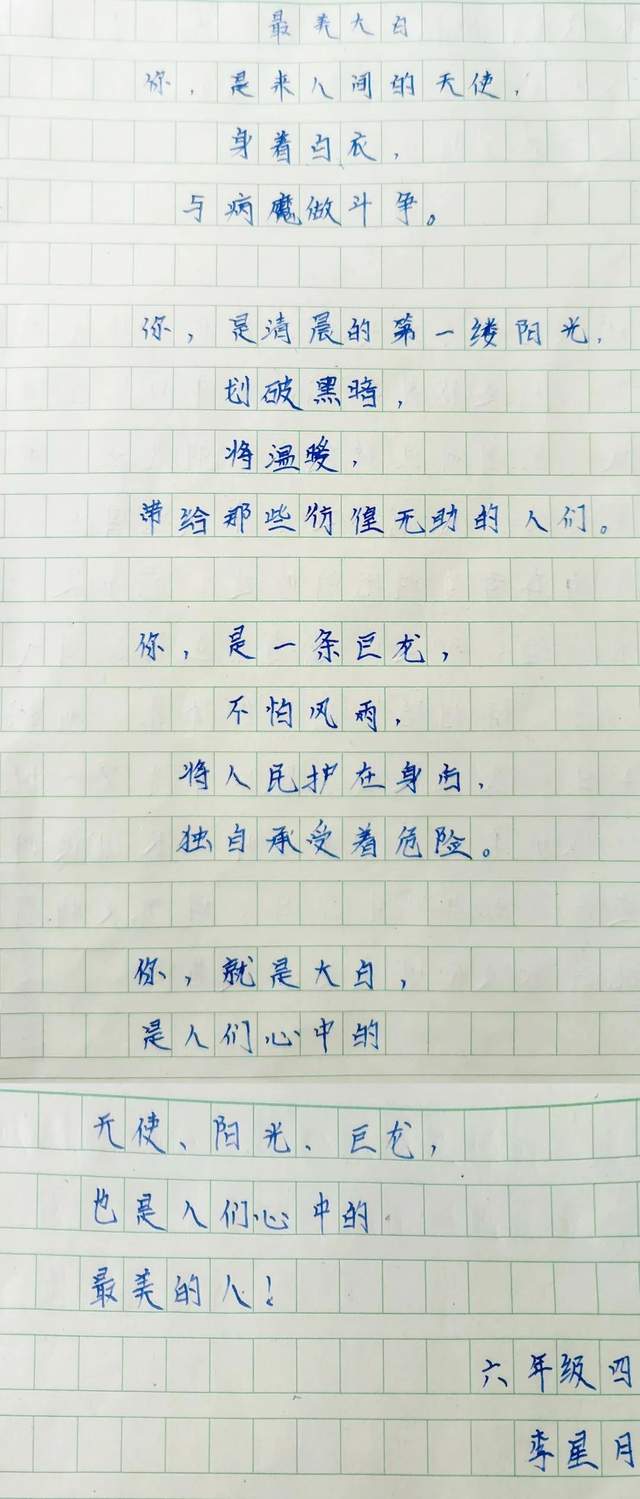 最美大白
你，是来人间的天使，
身着白衣，
与病魔做斗争。
你，是清晨的第一缕阳光，
划破黑暗，
将温暖，
带给那些彷徨无助的人们。
你，是一条巨龙，
不怕风雨，
将人民护在身后，
独自承受着危险。
你，就是大白，
是人们心中的
天使、阳光、巨龙，
也是人们心中的
最美的人！
六年级四
李星月